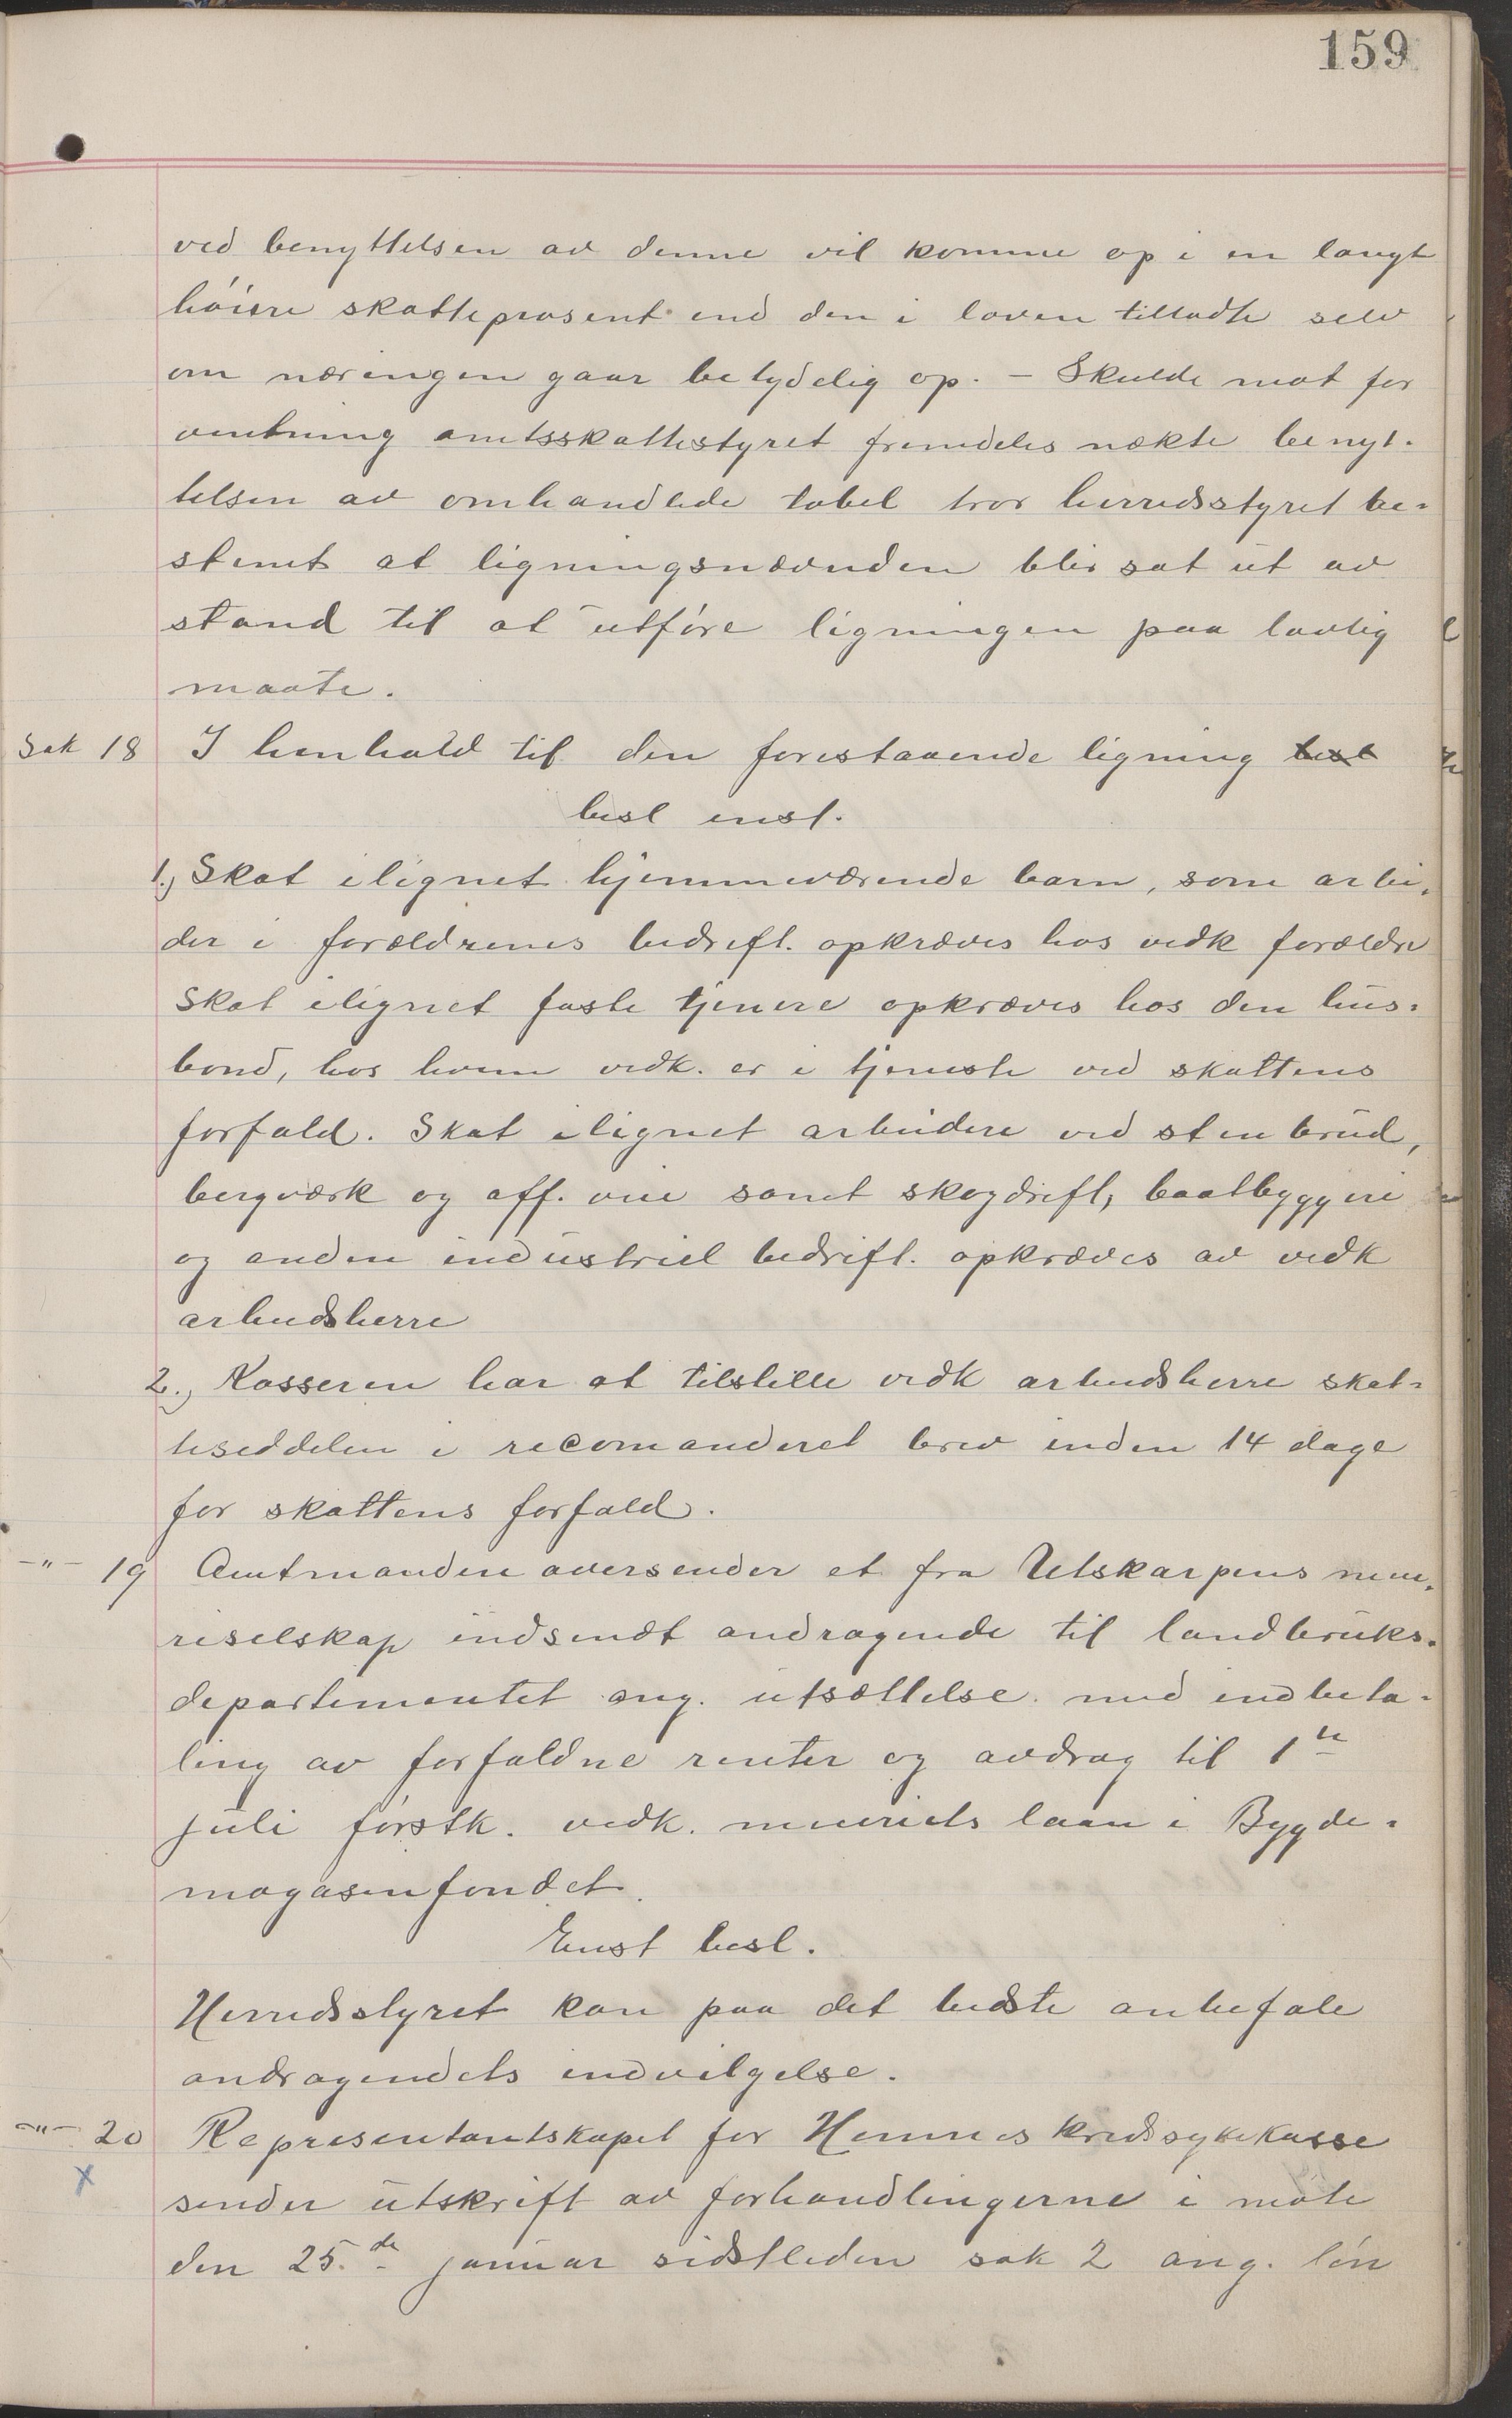 159
ved benyttelsen av denne vil komme op i en langt
høiere skatteprosent end den i loven tilladte selv
om næringen gaar betydelig op. – Skulde mot for
ventning amtsskattestyret fremdeles nekte benyt-
telsen av omhandlede tabel tror herredsstyret be-
stemt at ligningsnævnden blir sat ut av
stand til at utføre ligningen paa lovlig
maate.
Sak 18 I henhold til den forestaaende ligning besl
besl enst.
1.) Skat ilignet hjemmeværende barn, som arbei-
der i forældrenes bedrift. opkræves hos vedk forældre
Skat ilignet faste tjenere opkræves hos den hus-
bond, hos hvem vedk. er i tjeneste ved skattens
forfald. Skat ilignet arbeidere ved stenbrud,
bergværk og off. vei samt skogdrift, baatbyggeri
og anden industriel bedrift. opkræves av vedk
arbeidsherre
2.) Kasseren har at tilstille vedk arbeidsherre skat-
teseddelen i recomanderet brev inden 14 dage
før skattens forfald.
–"– 19 Amtmanden oversender et fra Utskarpens mei-
riselskap indsendt andragende til landbruks-
departementet ang. utsættelse med indbeta-
ling av forfaldne renter og avdrag til 1te
juli førstk. vedk. meieriets laan i Bygde-
magasinfondet.
Enst besl.
Herredsstyret kan paa det bedste anbefale
andragendets indvilgelse.
–"– 20 Representantskapet for Hemnes kredssykekasse
sender utskrift av forhandlingerne i møte
den 25.de januar sidstleden sak 2 ang. løn